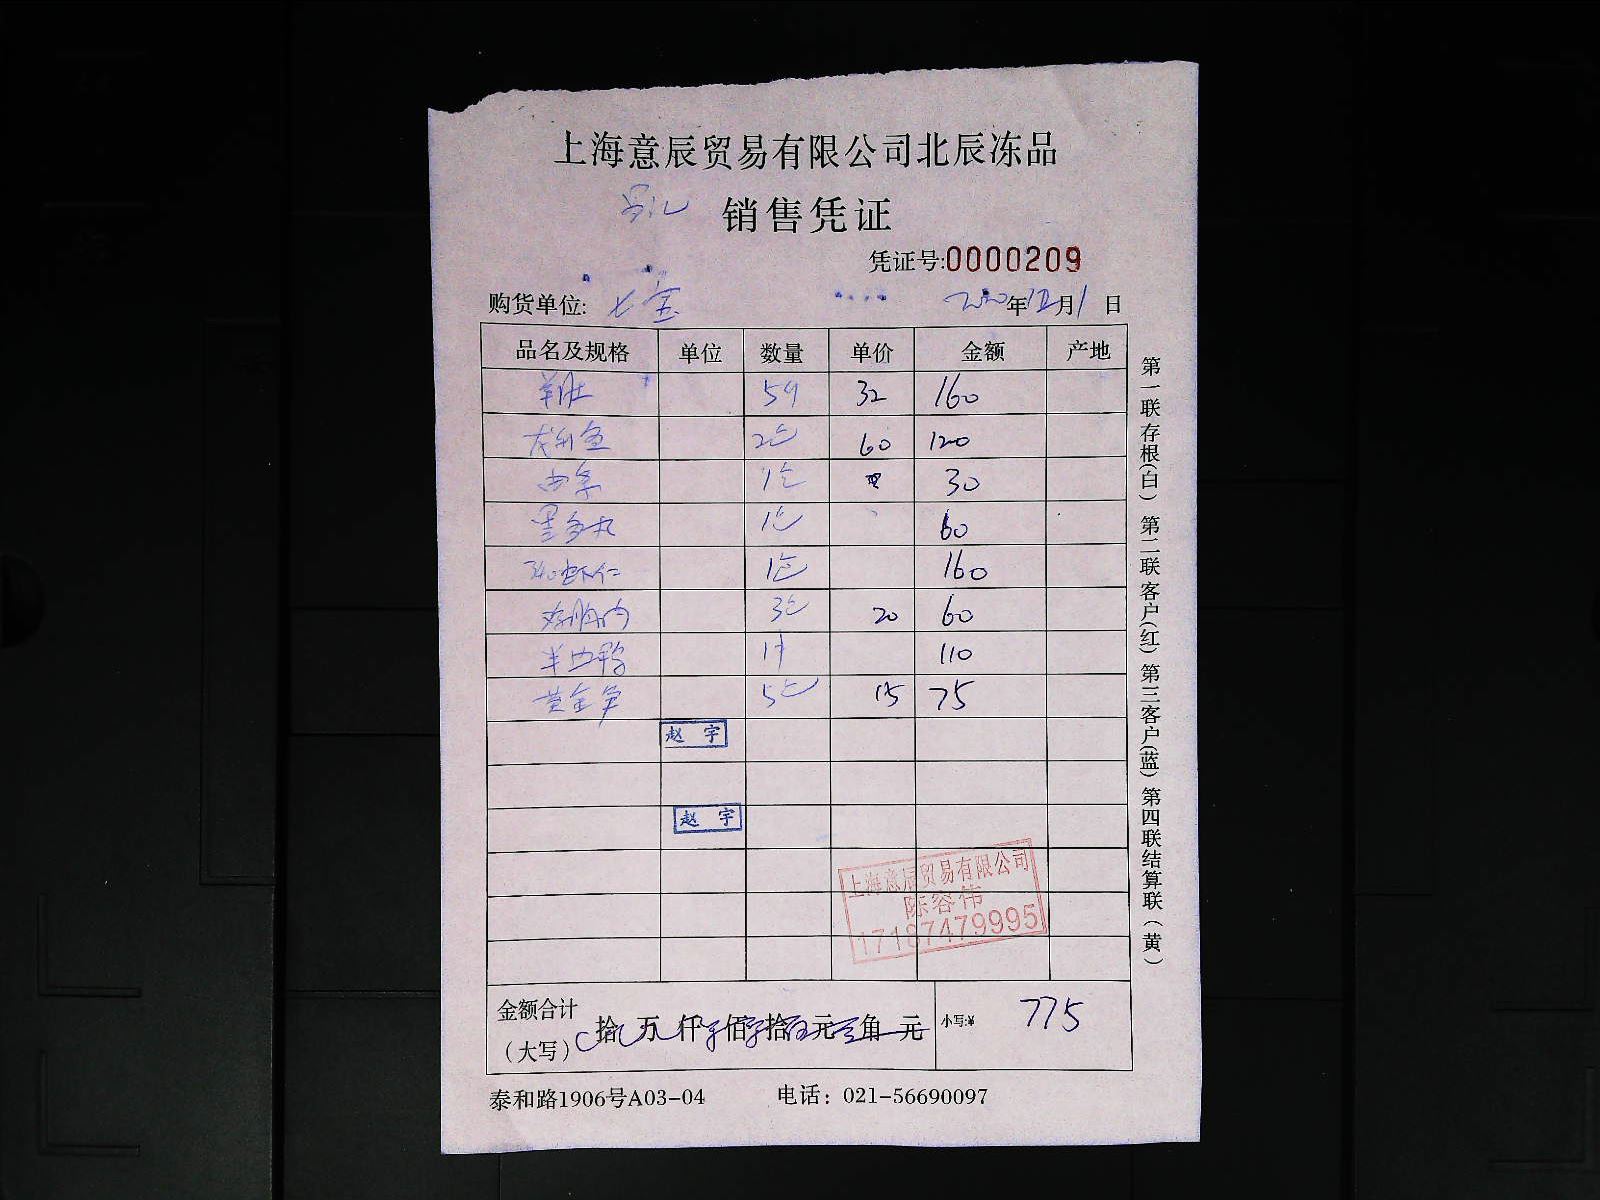 上海意辰贸易有限公司北辰冻品
销售凭证
凭证号:0000209
购货单位: 七宝 2020年12月1日
品名及规格 单位 数量 单价 金额 产地
羊肚 5斤 32 160
龙利鱼 2包 60 120
1包 30
墨鱼丸 1包 60
虾仁 1包 160
3包 20 60
半边鸭 1件 110
黄金 5包 15 75
赵宇
赵宇
上海意辰贸易有限公司
陈容伟
17187479995
金额合计(大写) 拾 万 仟 佰 拾 元 角 元 小写:¥ 775
泰和路1906号A03-04 电话：021-56690097
第一联存根(白) 第二联客户(红) 第三客户(蓝) 第四联结算联(黄)